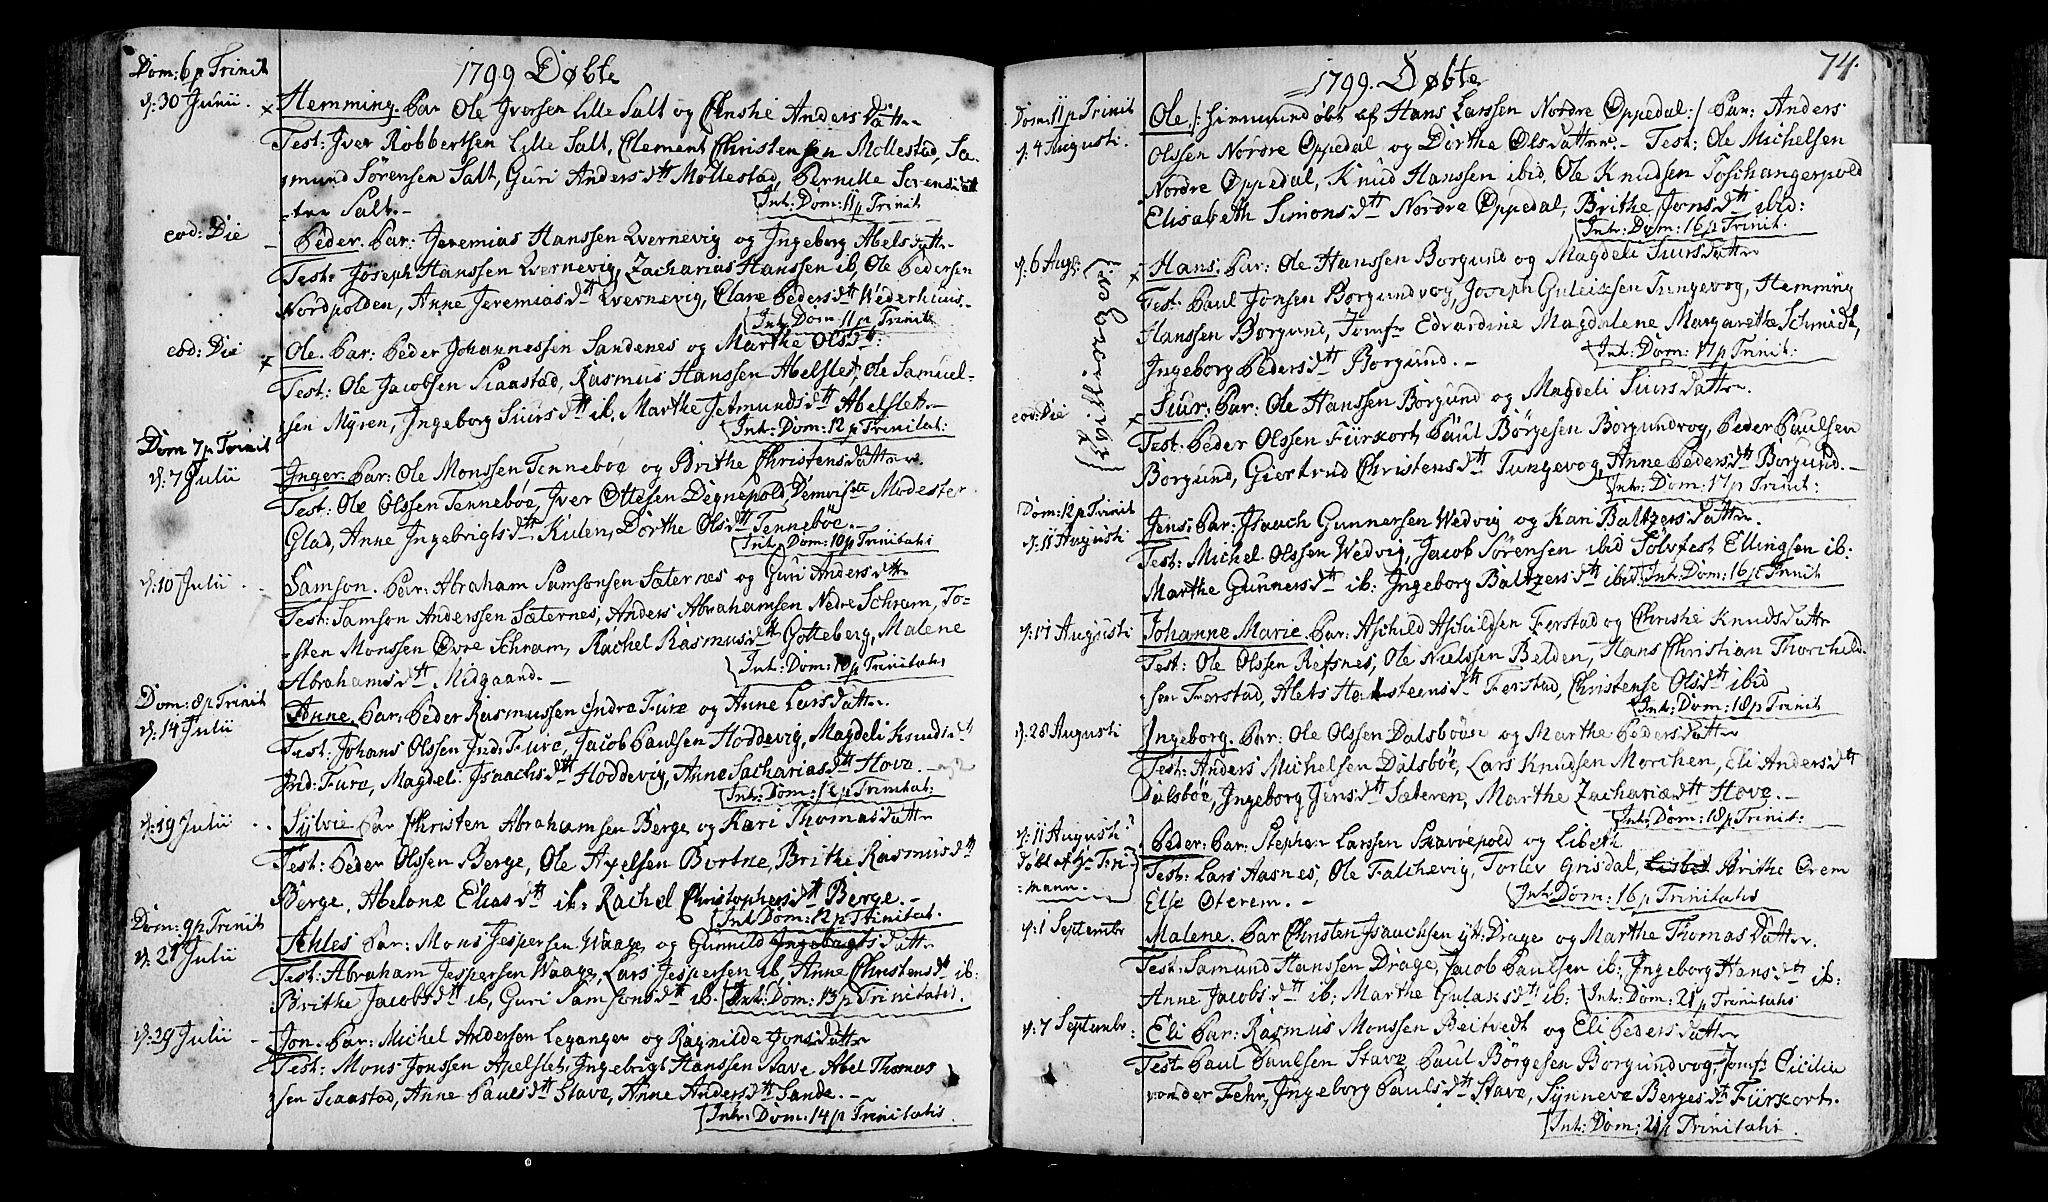 1799 Døbte
Dom: 6 p Trinit
d: 30 Junii. Hemming. Par Ole Iversen Lille Salt og Chrishe Anders Datter
Test: Iver Robbertsen Lille Salt, Clement Christensen Mollestad, Sa-
mund Sörensen Salt, Guri Andersdtt Mollestad, Pernille Sörensdatt
ter Salt.
Int: Dom: 11 p Trinit
eod: Die Peder. Par: Jeremias Hanssen Qvernevig og Ingeborg Abels datter
Test: Joseph Hanssen Qvernevig, Zacharias Hanssen ib, Ole Pedersen
Nordpolden, Anne Jeremiasdtt Qvernevig, Clare Pedersdtt Wederhuus-
Int: Dom 11 p Trinit
eod: Die Ole. Par: Peder Johannessen Sandenes og Marthe Olsdtt:
Test: Ole Jacobsen Scaastad, Rasmus Hanssen Abelslet, Ole Samuel-
sen Myren, Ingeborg Siursdtt ib. Marthe Jetmundsdtt Abelslett
Int: Dom: 12 p Trinitat:
Dom 7 p Trinit
d: 7 Julii Inger. Par: Ole Monssen Tenneboe og Brithe Christens Datter.
Test: Ole Olssen Tenneböe, Iver Ottesen Degnepold, Demoiselle Modester
Glad, Anne Ingebrigtsdtt Kiden, Dorthe Olsdtt Tenneböe.
Int: Dom: 10 p Trinitatis
d: 10 Julii Samson. Par: Abraham Samsonsen Sæternes og Guri Andersdtt
Test: Samson Anderssen Sæternes, Anders Abrahamsen Nedre Schram, To-
sten Monssen Övre Schram, Rachel Rasmusdtt Gotteberg, Malene
Abrahamsdtt Midgaard.
Int: Dom: 10 p Trinitatis
Dom: 8 p Trinit
d: 14 Julii Anne. Par: Peder Rasmussen Indre Fure og Anne Lars Datter.
Test: Johans Olssen Ind: Fure, Jacob Paulsen Hoddevig, Magdeli Knudsdtt
Ind: Fure, Magdeli Isaachsdtt Hoddevig, Anne Sachariasdtt Hove.
Int: Dom: 12 p Trinitat:
d: 19 Julii Sylvie Par Christen Abrahamsen Berge og Kari Thomas datter
Test: Peder Olssen Berge, Ole Axelsen Bortne, Brithe Rasmusdtt
Berge, Abelone Eliasdtt ib: Rachel Christophersdtt Berge.
Int: Dom: 12 p Trinitat.
Dom: 9 p Trinit
d: 21 Julii Athles Par: Mons Jespersen Waage og Gunnild Ingebrigts Datter
Test: Abraham Jespersen Waage, Lars Jespersen ib. Anne Christensdt ib:
Brithe Jacobsdtt ib, Guri Samsonsdtt ib. Int: Dom: 13 p Trinitatis.
d: 29 Julii Jon. Par: Michel Andersen Leganger og Ragnilde Jonsdatter
Test: Mons Jonssen Apelslet, Ingebrigt Hanssen Rave Abel Thomas
sen Scaastad, Anne Paulsdtt Stave, Anne Andersdtt Sande.
Int: Dom: 14 p Trinitatis.
74.
1799. Døbte
Dom: 11 p Trinit
d: 4 Augusti. Ole /: hiemmedöbt af Hans Larssen Nordre Oppedal:/ Par: Anders
Olssen Nordre Oppedal og Dorthe Olsdatter. Test: Ole Michelsen
Nordre Oppedal, Knud Hanssen ibid, Ole Knudsen Toschangerpold
Elisabeth Simonsdtt Nordre Oppedal, Brithe Jonsdtt ibid:
Int: Dom: 16 p Trinit.
d: 6 Aug: Hans. Par: Ole Hanssen Borgund og Magdeli Siurs datter
Test: Paul Jonsen Borgundvog, Joseph Guleiksen Tungevog, Hemming
Hanssen Borgund, Jomfr Edvardine Magdalene Margarethe Schmidt,
Ingeborg Pedersdtt Borgund.
Int: Dom: 17 p Trinit:
eod: Die Siur. Par: Ole Hanssen Borgund og Magdeli Siurs Datter.
Test: Peder Olssen Fürkort, Paul Börgesen Borgundvog, Peder Paulsen
Borgund, Giertrud Christensdtt Tungevog, Anne Pedersdtt Borgund.
Int: Dom: 17 p Trinit:
Dom: 12 p Trinit
d: 11 Augusti Jens. Par: Isaach Gunnersen Wedvig og Kari Baltzers datter.
Test: Michel Olssen Wedvig, Jacob Sörensen ibid Sölvfest Ellingsen ib:
Marthe Gunnersdtt ib: Ingeborg Baltzersdtt ibid. Int: Dom: 16 p Trinit
d: 17 Augusti Johanne Marie. Par: Aschild Aschildsen Ferstad og Chrishe Knuds datter
Test: Ole Olssen Refsnes, Ole Nielssen Belden, Hans Christian Thorchild-
sen Ferstad, Alets Holsteensdtt Ferstad, Christense Olsdtt ibid
Int: Dom: 18 p Trinit
d: 28 Augusti Ingeborg. Par: Ole Olssen Dalsböe og Marthe Peders Datter
Test: Anders Michelsen Dalsböe, Lars Knudsen Morchen, Eli Andersdtt
Dalsböe, Ingeborg Jensdtt Sæteren, Marthe Zachariædtt Hove.
Int: Dom: 18 p Trinit:
d: 11 August: Peder. Par: Stephen Larssen Skavöepold og Libeth
Test: Lars Aasnes, Ole Falchevig, Torlev Grisdal, Brithe Orem
Else Oterem.
Int: Dom: 16 p Trinitatis
d: 1 Septembr Malene. Par Christen Isaachsen yt: Drage og Marthe Thomas datter.
Test: Samund Hanssen Drage, Jacob Paulsen ib: Ingeborg Hansdtt ib:
Anne Jacobsdtt ib: Marthe Gulaksdtt ib: Int: Dom: 21 p Trinitatis
d: 7 Septembr Eli Par: Rasmus Monssen Beitvedt og Eli Peders datter
Test Paul Paulsen Stave Paul Börgesen Borgundvog Jomfr Cicilia
von der Fehr, Ingeborg Paulsdtt Stave, Synneve Bergesdt Fürkort.
Int: Dom: 21 p Trinitatis.